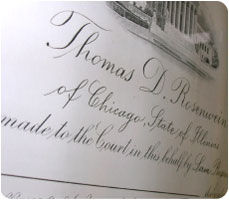 Thomas D. Rosenwein
of Chicago, State of Illinois
made to the Court, in this behalf by